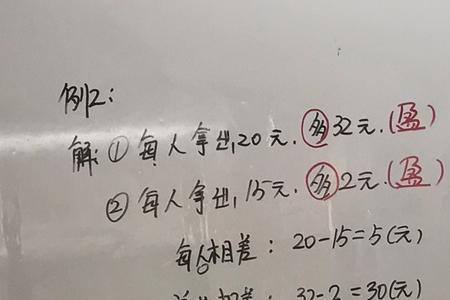 例2:
解:①每人拿出,20元.多32元.(盈)
②每人拿出,15元.多2元.(盈)
每人相差:20-15=5(元)
相差:32-2=30(元)